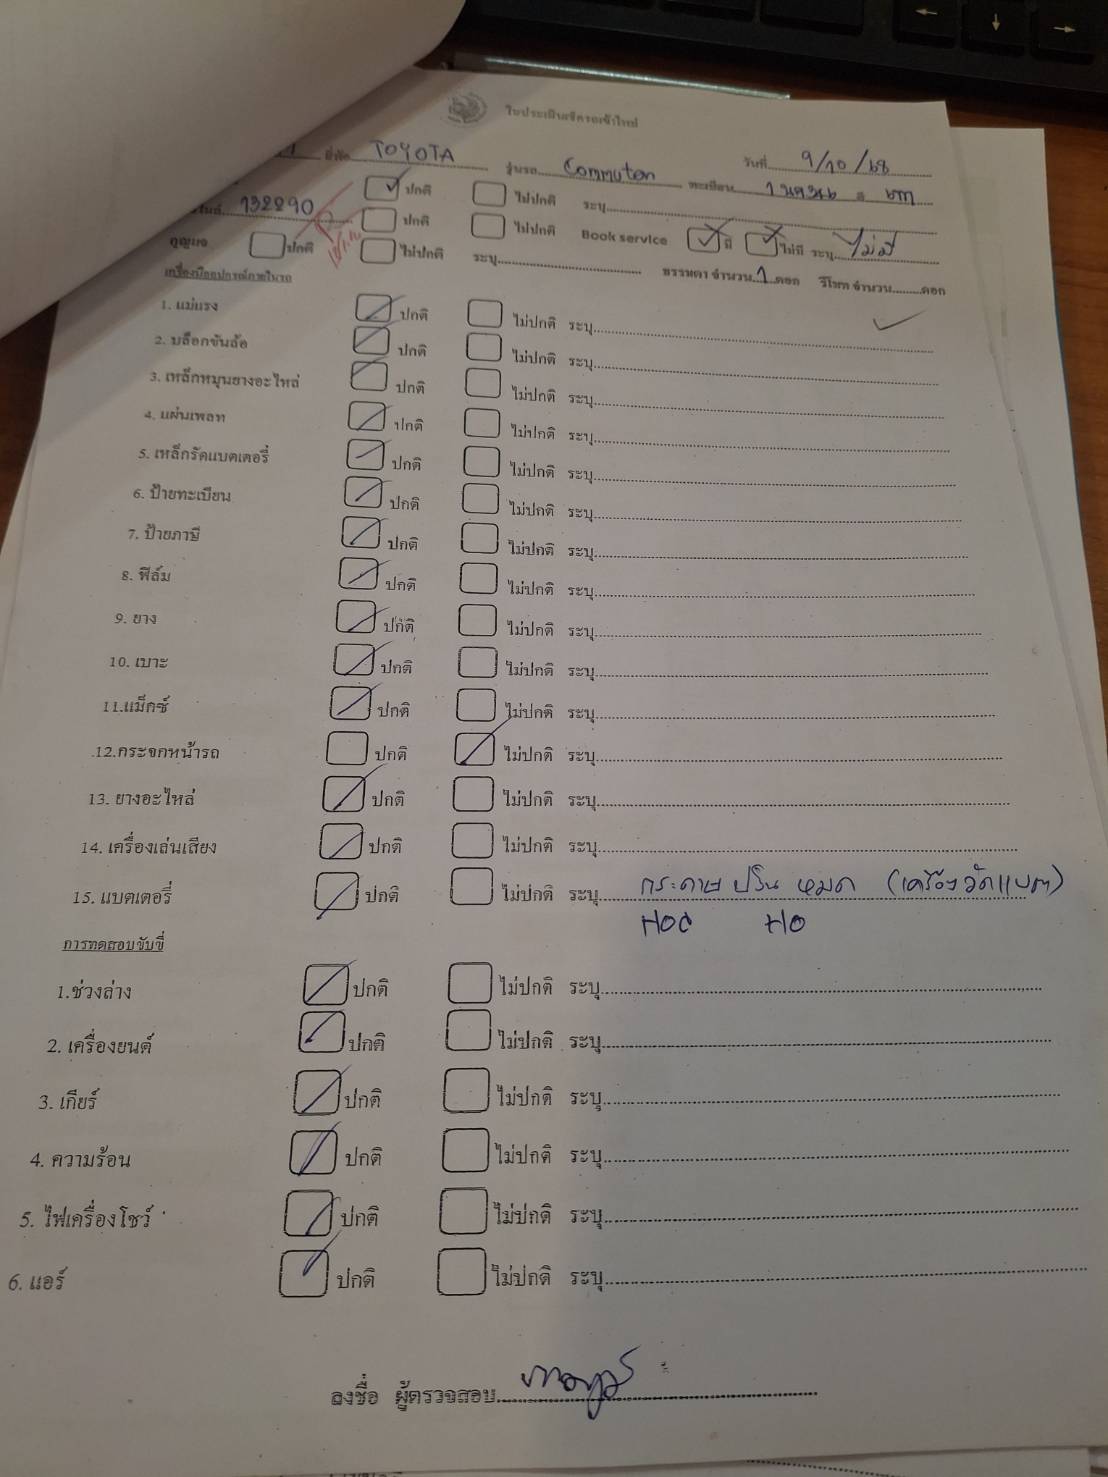 ใบประเมินเช็ครถเข้าใหม่
ยี่ห้อ TOYOTA รุ่นรถ Commuter ทะเบียน วันที่ 9/10/68
132890 ปกติ ไม่ปกติ ระบุ
ปกติ ไม่ปกติ Book service มี ไม่มี ระบุ ไม่มี
กุญแจ ปกติ ไม่ปกติ ระบุ ธรรมดา จำนวน 1 ดอก รีโมท จำนวน ดอก
เครื่องมืออุปกรณ์ภายในรถ
1. แม่แรง ปกติ ไม่ปกติ ระบุ
2. บล็อกขันล้อ ปกติ ไม่ปกติ ระบุ
3. เหล็กหมุนยางอะไหล่ ปกติ ไม่ปกติ ระบุ
4. แผ่นเพลท ปกติ ไม่ปกติ ระบุ
5. เหล็กรัดแบตเตอรี่ ปกติ ไม่ปกติ ระบุ
6. ป้ายทะเบียน ปกติ ไม่ปกติ ระบุ
7. ป้ายภาษี ปกติ ไม่ปกติ ระบุ
8. ฟิล์ม ปกติ ไม่ปกติ ระบุ
9. ยาง ปกติ ไม่ปกติ ระบุ
10. เบาะ ปกติ ไม่ปกติ ระบุ
11.แม็กซ์ ปกติ ไม่ปกติ ระบุ
12.กระจกหน้ารถ ปกติ ไม่ปกติ ระบุ
13. ยางอะไหล่ ปกติ ไม่ปกติ ระบุ
14. เครื่องเล่นเสียง ปกติ ไม่ปกติ ระบุ
15. แบตเตอรี่ ปกติ ไม่ปกติ ระบุ กระดาษ ปริ้น หมด (เครื่องวัดแบต)
การทดสอบขับขี่
1.ช่วงล่าง ปกติ ไม่ปกติ ระบุ
2. เครื่องยนต์ ปกติ ไม่ปกติ ระบุ
3. เกียร์ ปกติ ไม่ปกติ ระบุ
4. ความร้อน ปกติ ไม่ปกติ ระบุ
5. ไฟเครื่องโชว์ ปกติ ไม่ปกติ ระบุ
6. แอร์ ปกติ ไม่ปกติ ระบุ
ลงชื่อ ผู้ตรวจสอบ